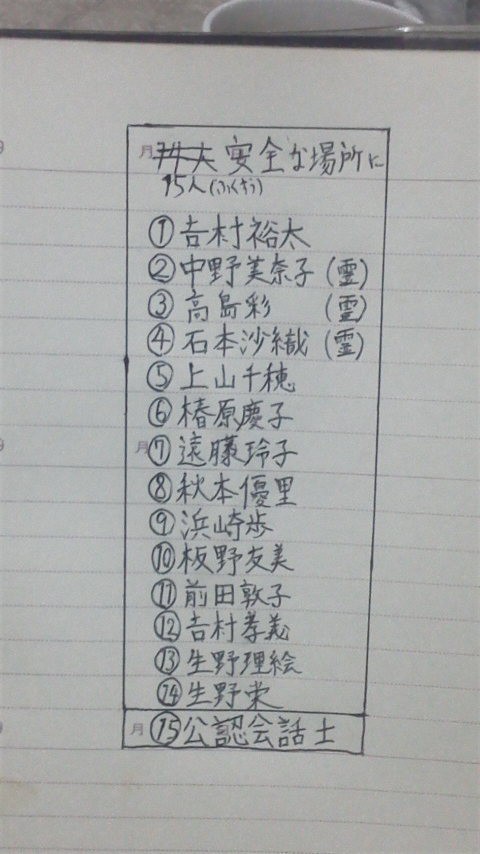 安全な場所に
15人(ふくむ)
①吉村裕太
②中野美奈子(霊)
③高島彩 (霊)
④石本沙織(霊)
⑤上山千穂
⑥椿原慶子
月⑦遠藤玲子
⑧秋本優里
⑨浜崎歩
⑩板野友美
⑪前田敦子
⑫吉村孝義
⑬生野理絵
⑭生野栄
月⑮公認会話士